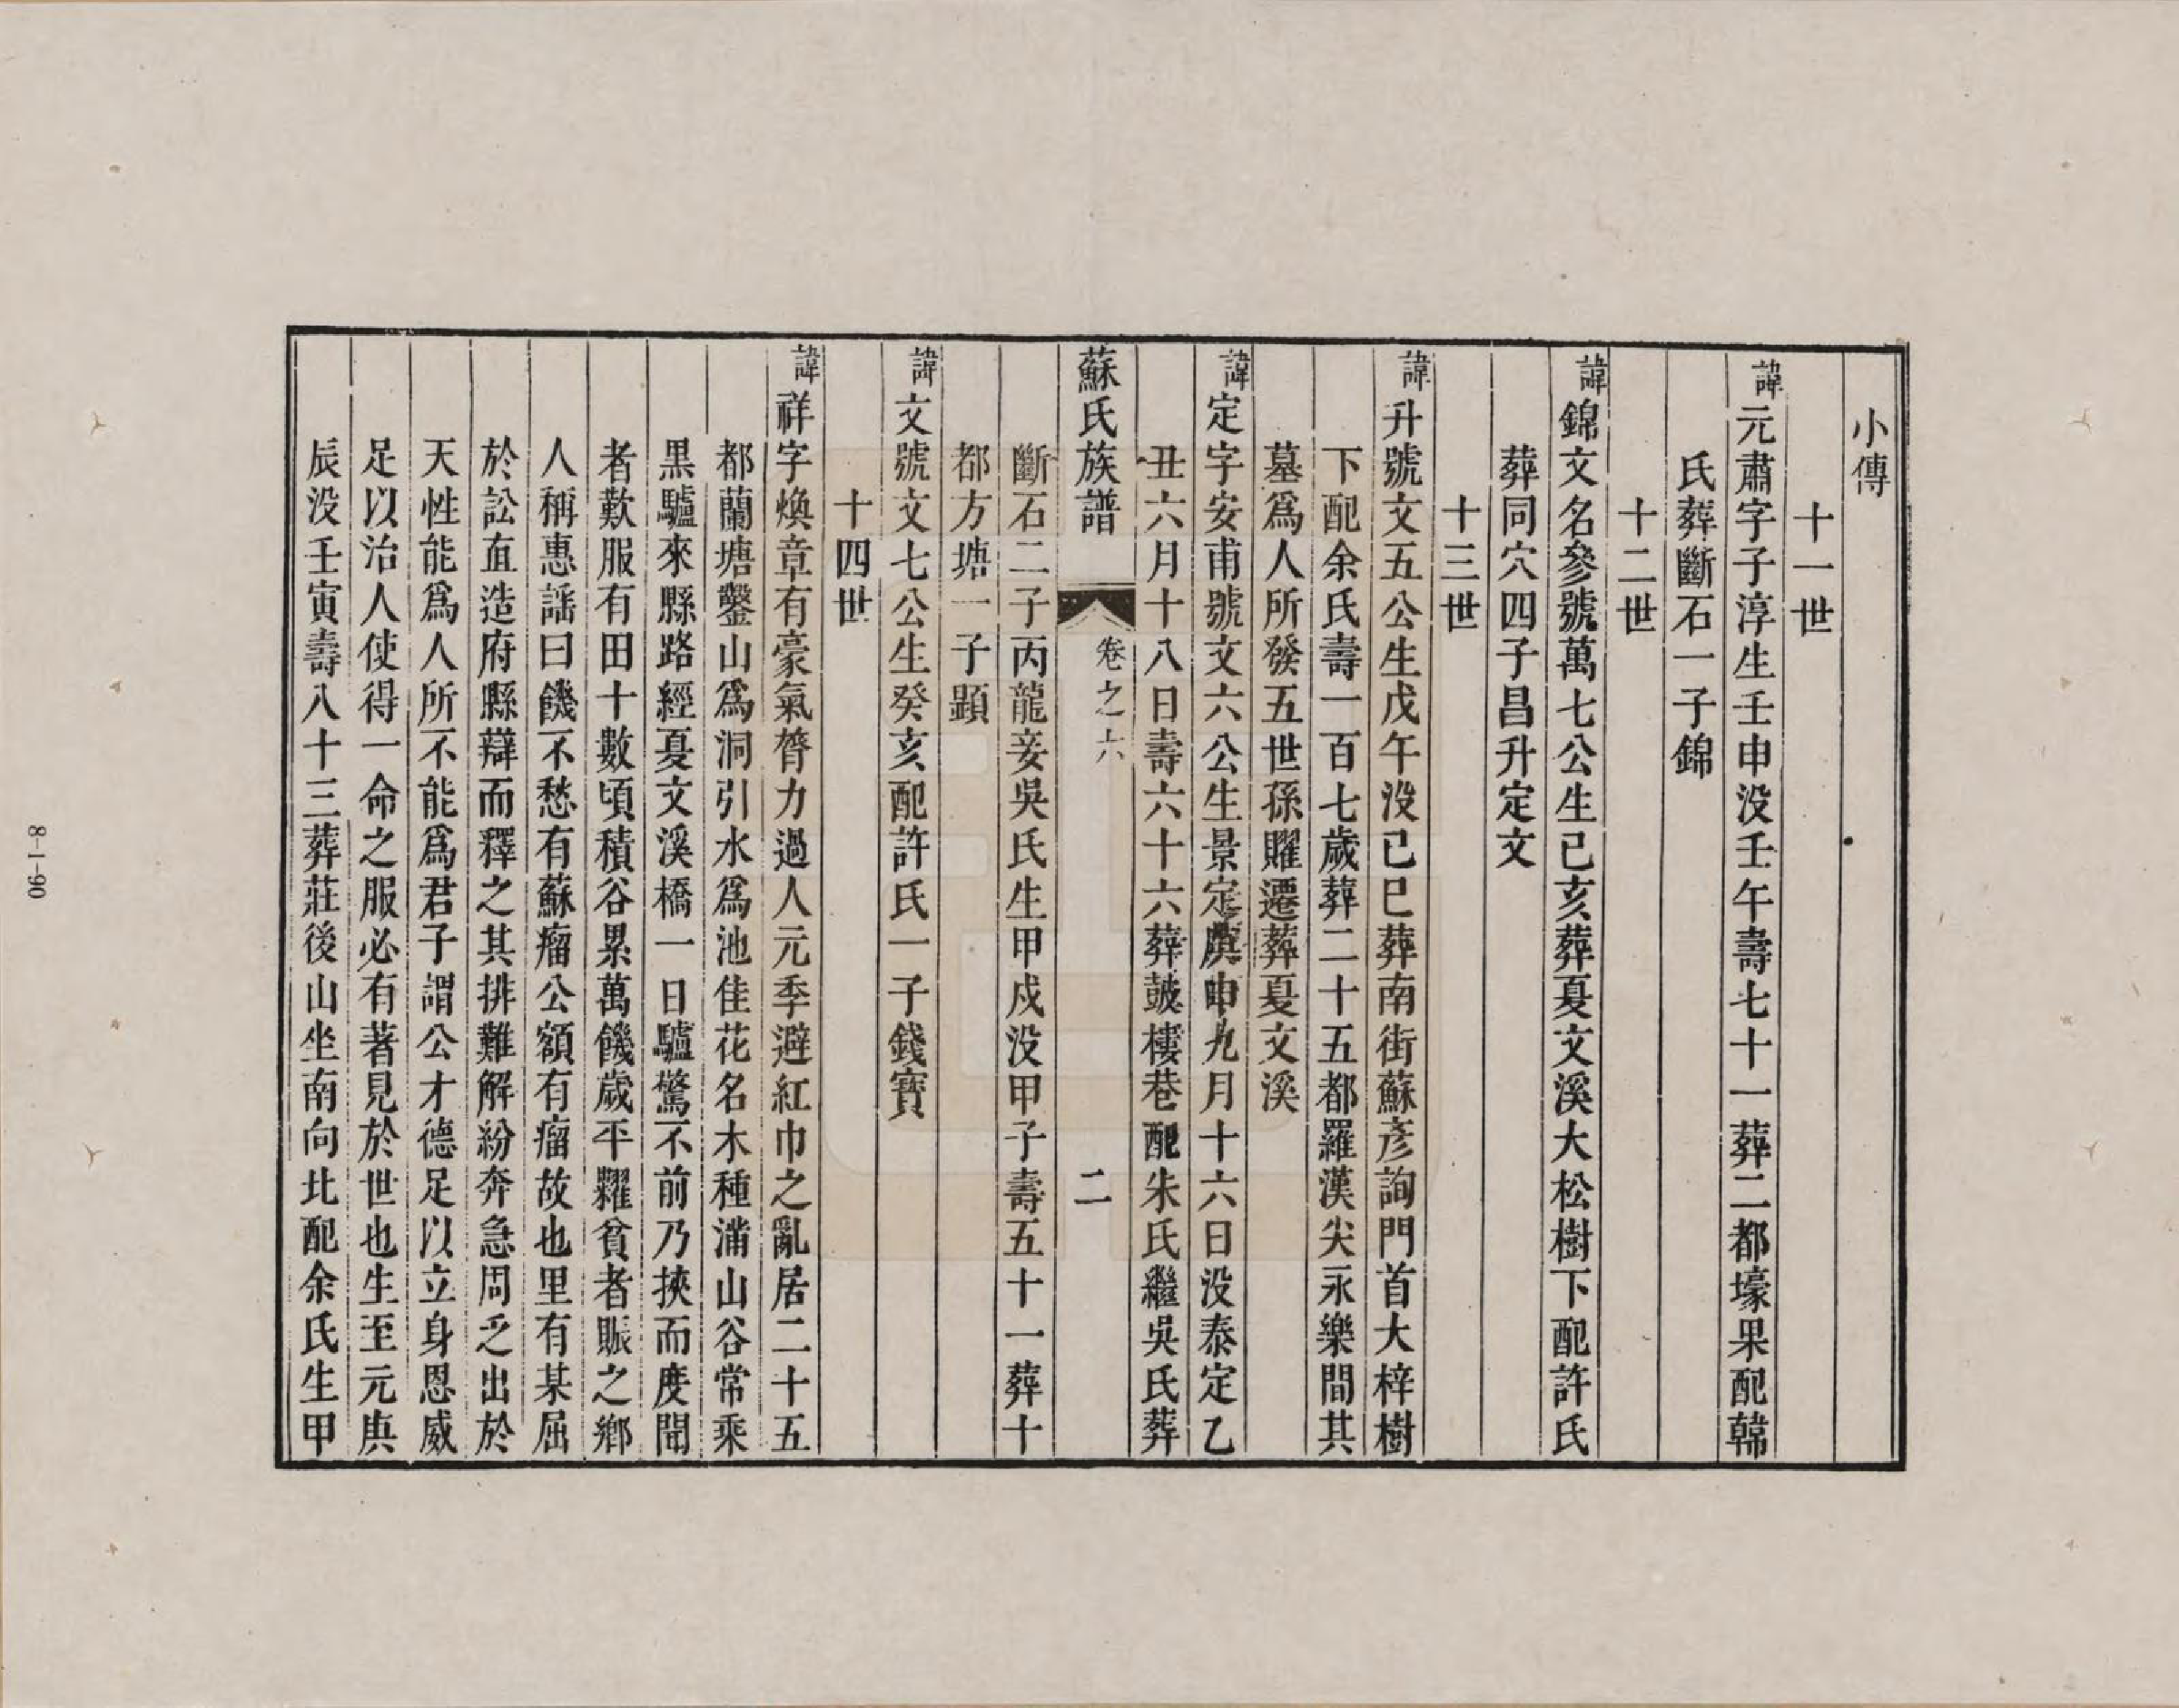 小傳
十一世
諱元肅字子淳生壬申没壬午壽七十一葬二都壕果配韓
氏葬斷石一子錦
十二世
諱錦文名參號萬七公生己亥葬夏文溪大松樹下配許氏
葬同穴四子昌升定文
十三世
諱升號文五公生戊午没己巳葬南街蘇彥詢門首大梓樹
下配余氏壽一百七歲葬二十五都羅漢尖永樂間其
墓爲人所發五世孫耀遷葬夏文溪
諱定字安甫號文六公生景定庚申九月十六日没泰定乙
丑六月十八日壽六十六葬鼓樓巷配朱氏繼吳氏葬
斷石二子丙龍妾吳氏生甲戌没甲子壽五十一葬十
都方塘一子顕
諱文號文七公生癸亥配許氏一子錢寶
十四世
諱祥字煥章有豪氣膂力過人元季避紅巾之亂居二十五
都蘭塘鑿山爲洞引水爲池佳花名木種滿山谷常乘
黒驢來縣路經夏文溪橋一日驢驚不前乃挾而度聞
者歎服有田十數頃積谷累萬饑歲平糶貧者賑之鄉
人稱惠謡曰饑不愁有蘇瘤公額有瘤故也里有某屈
於訟直造府縣辯而釋之其排難解紛奔急周乏出於
天性能爲人所不能爲君子謂公才德足以立身恩威
足以治人使得一命之服必有著見於世也生至元庚
辰没壬寅壽八十三葬莊後山坐南向北配余氏生甲
蘇氏族譜 卷之六 二
8-1-90